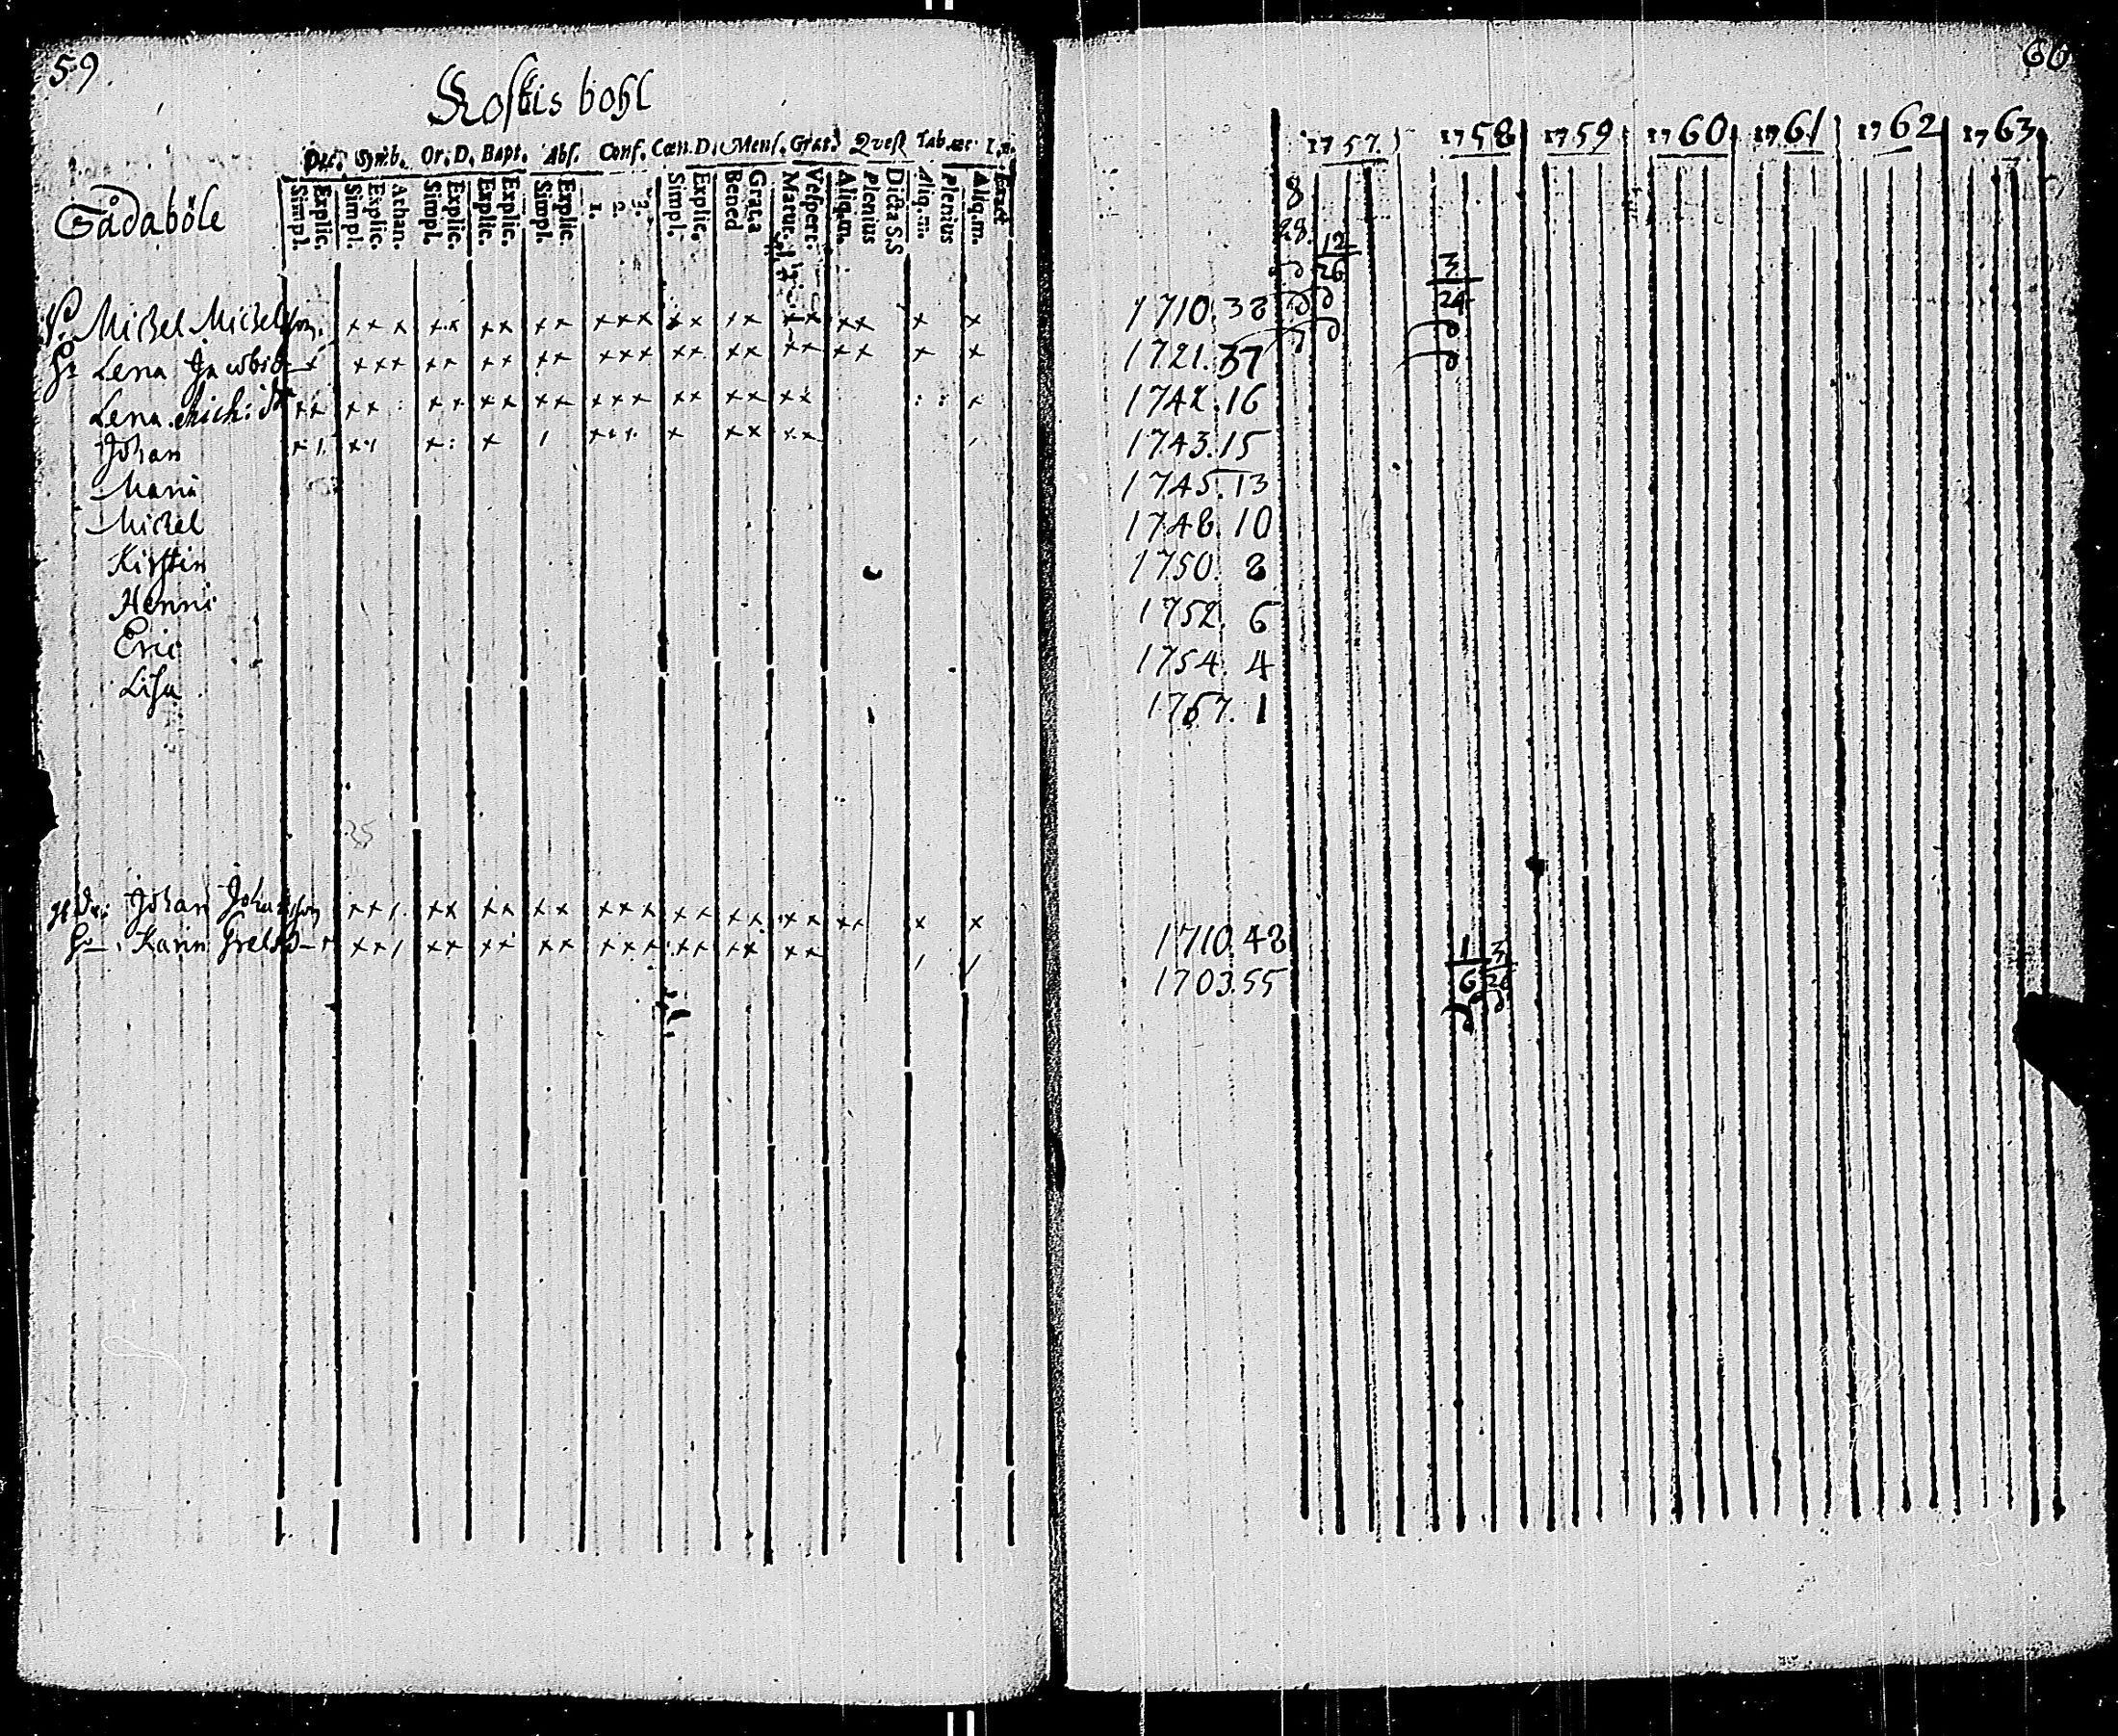 59
Roskis bohl
Dec. Symb. Or. D. Bapt. Abs. Conf. Cœn. D. Mens. Grat. Quest Tab. œc.
Gådaböle
Simpl. Explic. Simpl. Explic. Athan. Simpl. Explic. Explic. Explic. Simpl. Explic. 1. 2. 3. Simpl. Explic. Bened Grat.a Matut. Vespert. Aliq.m. Plenius Dicta S.S Aliq.m. Plenius Aliq.m. Exact
Michel Michelsson.
Lena Jacobsd
Lena Mich: dr
Johan
Maria
Michel
Kirstin
Henric
Eric
Lisa
35
Johan Johansson
Karin Grelsd
60
1757. 1758 1759 1760 1761 1762 1763
8
28. 12 3
26 24
1710.38
1721.37
1742.16
1743.15
1745.13
1748.10
1750. 8
1752. 6
1754. 4
1757. 1
1710.48
1 3
1703.55 6 24